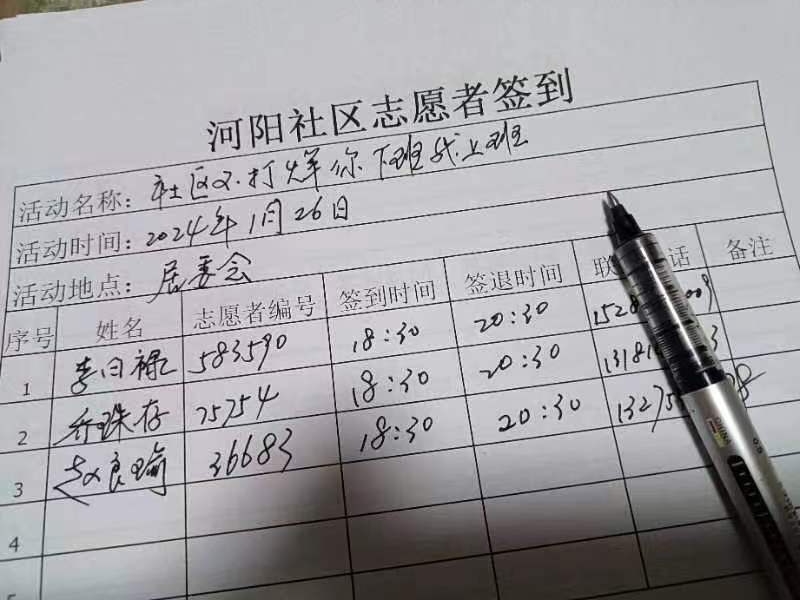 河阳社区志愿者签到
活动名称：社区不打烊你下班我上班
活动时间：2024年1月26日
活动地点：居委会
序号 姓名 志愿者编号 签到时间 签退时间 联 话 备注
1 李日禄 583590 18:30 20:30 1528 009
2 乔珠存 75754 18:30 20:30 1318 3
3 赵良瑜 36683 18:30 20:30 1327 8
4
CHINA
0.5